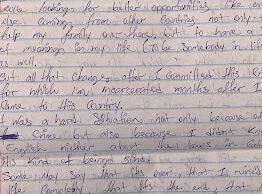 2016 looking for better opportunities, like everyone
else coming from other Countries not only to
help my family over there, but to have a
of meaning in my life (To be Somebody in life
as well.
But all that change, after I committed this
for which I'm incarcerated months after I
Came to this Country.
It was a hard Situation, not only because of
Crime, but also because I didn't know
English neither about the laws in
Its kind of being blind.
Some May Say that its over, that I ruined
life Completly that this the end, that